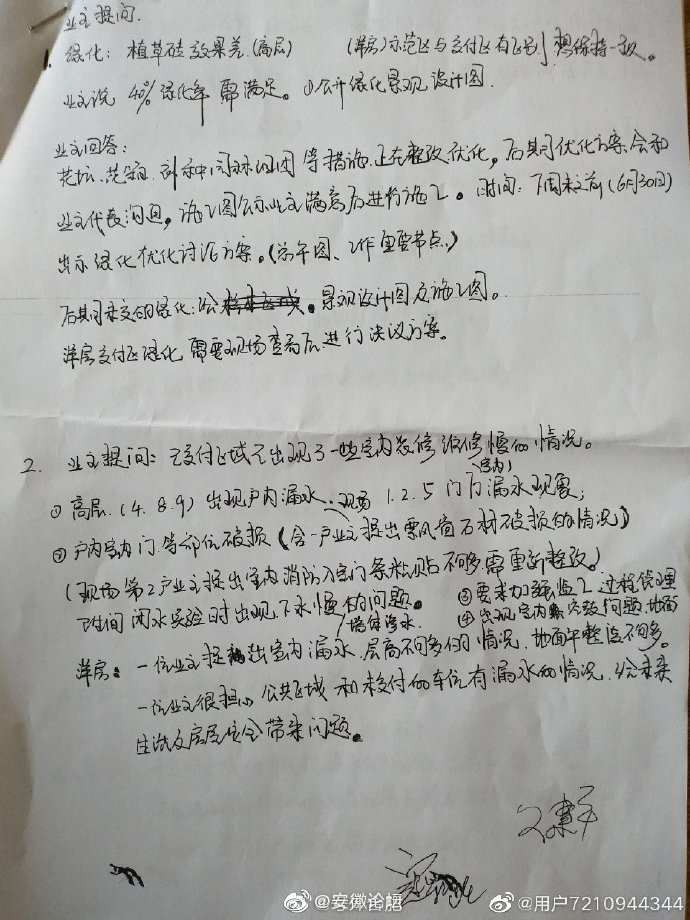 业主提问.
绿化: 植草砖效果差.(高层) (洋房)示范区与交付区有区别 想保持一致。
业主说 40%绿化率 需满足。①公开绿化景观设计图.
业主回答:
花坛、花箱 等措施.正在整改优化, 后期优化方案会和
业主代表沟通, 施工图公示业主满意后进行施工。时间: 下周末前(6月30日)
出示绿化优化讨论方案。( 图、工作重要节点.)
后期未交的绿化:公 。景观设计图及施工图。
洋房交付区绿化 需要现场查看后进行决议方案。
2. 业主提问: 已交付区域已出现了一些室内装修 维修慢的情况。
①高层.(4.8.9)出现户内漏水. 现场 1.2.5 门厅漏水现象, (室内)
②户内室内门等部位破损(含一户业主提出飘窗石材破损的情况)
(现场第2户业主提出室内消防入室门 不够需重新整改。)
闭水实验时出现下水慢的问题。 ③要求加强监工 过程管理
墙体渗水 ④出现室内 问题 地面
洋房: 一位业主提出室内漏水、层高不够的情况、地面平整度不够。
一位业主很担心 公共区域 和 未交付的车位有漏水的情况.给未来
生活及房屋安全带来问题。
@安徽论坛
@用户7210944344